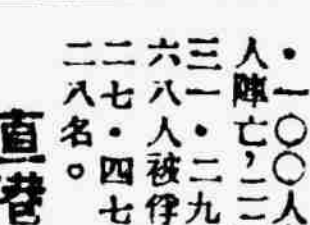 •一〇〇人
人陣亡,二二
三一•二九
六八人被俘
二七•四七
二八名。